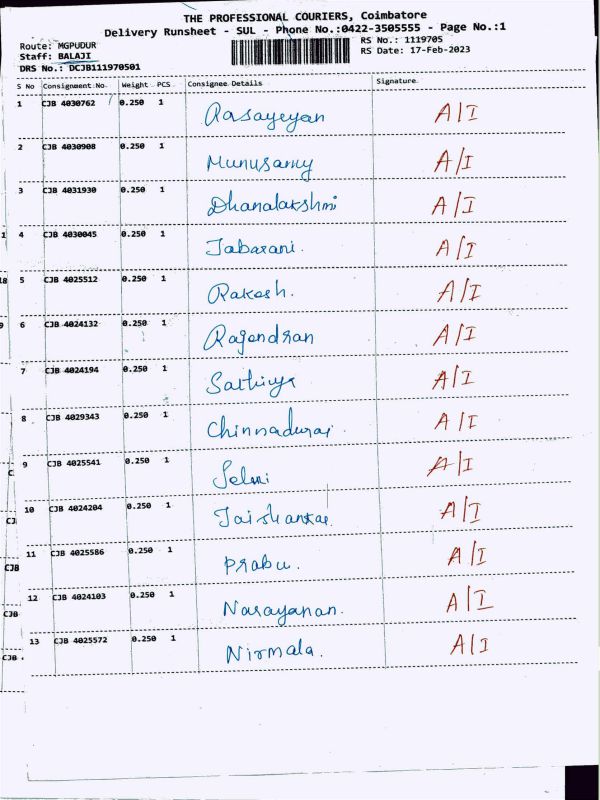 THE PROFESSIONAL COURIERS, Coimbatore
Delivery Runsheet - SUL - Phone No.:0422-3505555 - Page No.:1
Route: MGPUDUR
RS No.: 1119705
Staff: BALAJI
RS Date: 17-Feb-2023
DRS No.: DCJB111970501
S No Consignment No. Weight PCS Consignee Details Signature
1 CJB 4030762 0.250 1 Rasayeyan A/I
2 CJB 4030908 0.250 1 Munusamy A/I
3 CJB 4031930 0.250 1 Dhanalakshmi A/I
4 CJB 4030045 0.250 1 Jabarani. A/I
5 CJB 4025512 0.250 1 Rakesh. A/I
6 CJB 4024132 0.250 1 Rajendran A/I
7 CJB 4024194 0.250 1 Sathiya A/I
8 CJB 4029343 0.250 1 Chinnadurai. A/I
9 CJB 4025541 0.250 1 Selvi A/I
10 CJB 4024204 0.250 1 Jaishankar. A/I
11 CJB 4025586 0.250 1 Prabu. A/I
12 CJB 4024103 0.250 1 Narayanan. A/I
13 CJB 4025572 0.250 1 Nirmala. A/I